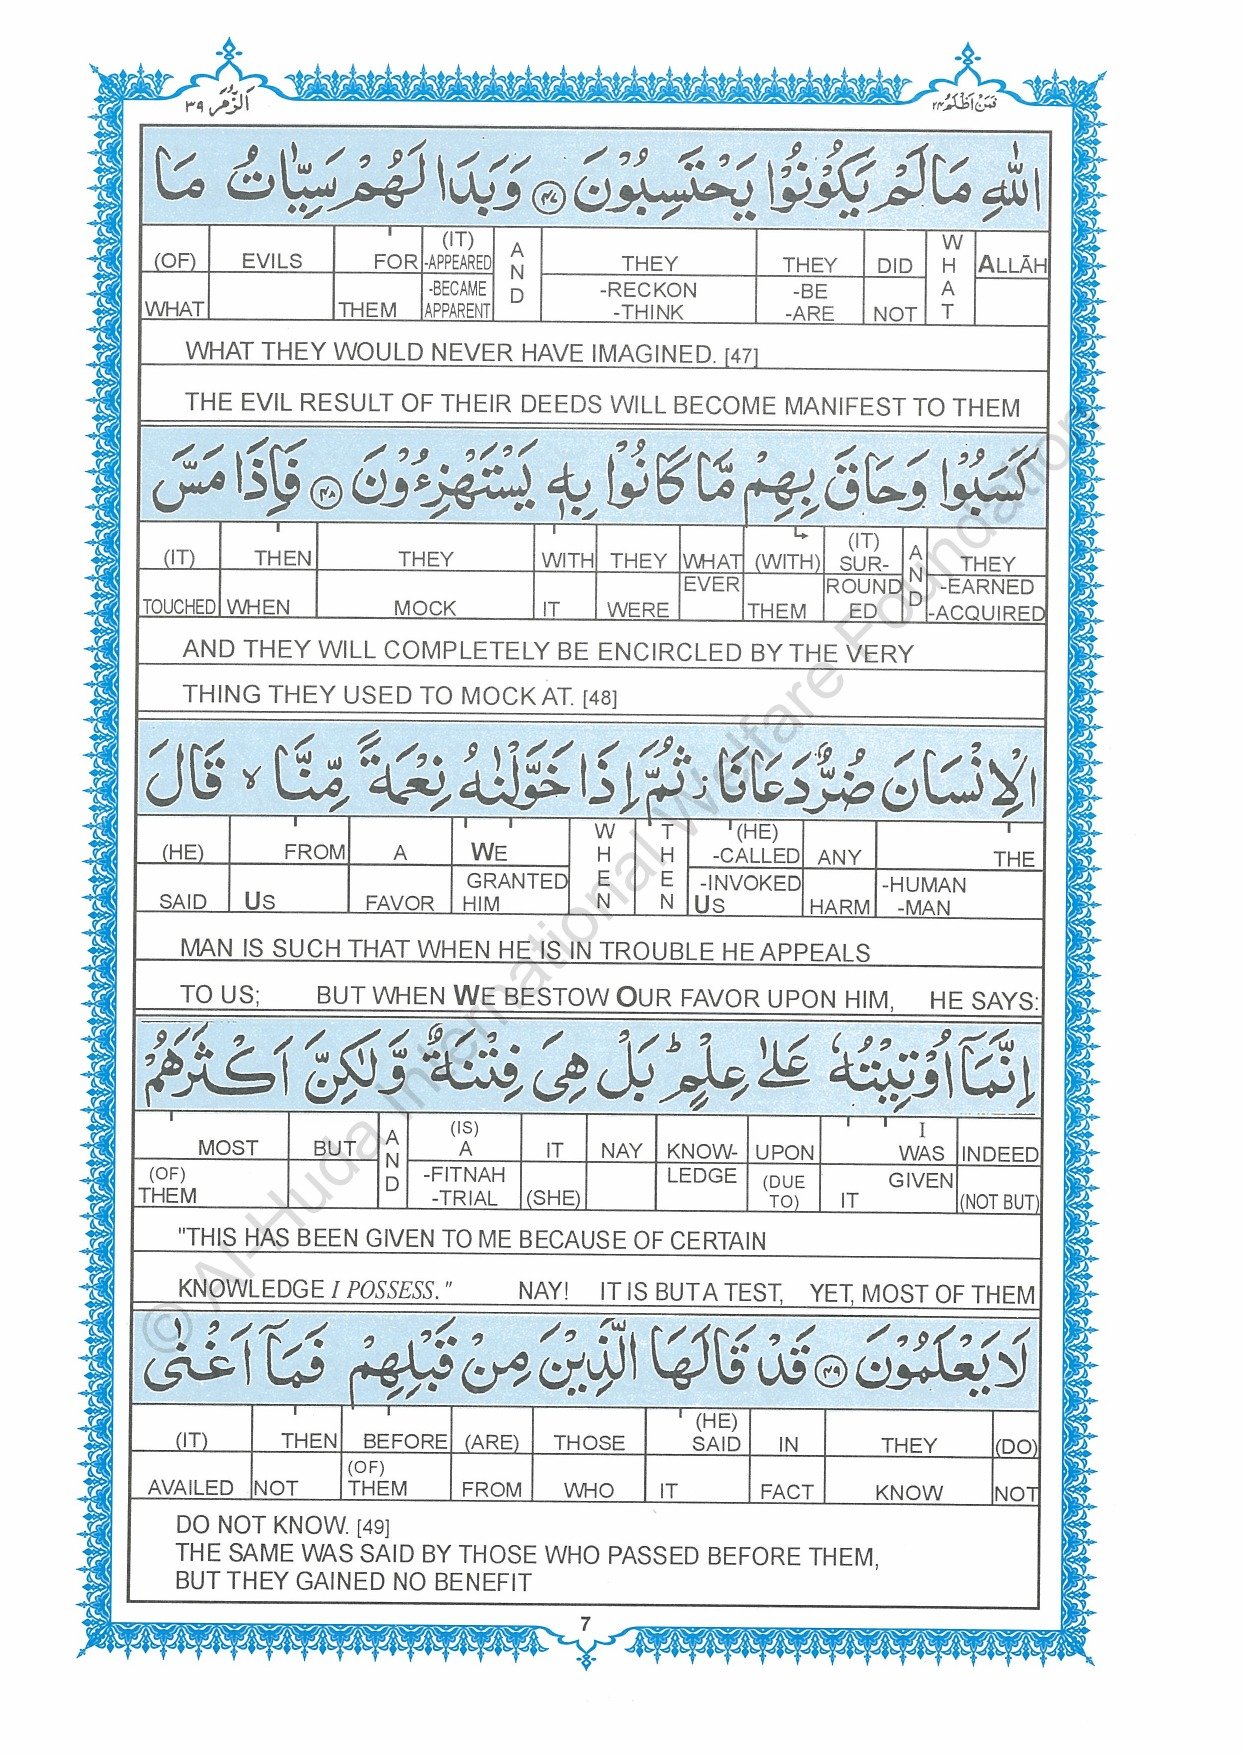 اَلزُّمَر ٣٩
فَمَنْ اَظْلَمُ ٢٤
اللّٰهِ مَا لَمْ يَكُوْنُوْا يَحْتَسِبُوْنَ ﴿٤٧﴾ وَبَدَا لَهُمْ سَيِّاٰتُ مَا
(OF) WHAT | EVILS | FOR THEM | (IT) -APPEARED -BECAME APPARENT | AND | THEY -RECKON -THINK | THEY -BE -ARE | DID NOT | WHAT | ALLĀH
WHAT THEY WOULD NEVER HAVE IMAGINED. [47]
THE EVIL RESULT OF THEIR DEEDS WILL BECOME MANIFEST TO THEM
كَسَبُوْا وَحَاقَ بِهِمْ مَّا كَانُوْا بِهٖ يَسْتَهْزِءُوْنَ ﴿٤٨﴾ فَاِذَا مَسَّ
(IT) TOUCHED | THEN WHEN | THEY MOCK | WITH IT | THEY WERE | WHAT EVER | (WITH) THEM | (IT) SUR-ROUND ED | AND | THEY -EARNED -ACQUIRED
AND THEY WILL COMPLETELY BE ENCIRCLED BY THE VERY
THING THEY USED TO MOCK AT. [48]
الْاِنْسَانَ ضُرٌّ دَعَانَا ز ثُمَّ اِذَا خَوَّلْنٰهُ نِعْمَةً مِّنَّا ۙ قَالَ
(HE) SAID | FROM US | A FAVOR | WE GRANTED HIM | WHEN | THEN | (HE) -CALLED -INVOKED US | ANY HARM | THE -HUMAN -MAN
MAN IS SUCH THAT WHEN HE IS IN TROUBLE HE APPEALS
TO US; BUT WHEN WE BESTOW OUR FAVOR UPON HIM, HE SAYS:
اِنَّمَآ اُوْتِيْتُهٗ عَلٰى عِلْمٍ ؕ بَلْ هِىَ فِتْنَةٌ وَّلٰكِنَّ اَكْثَرَهُمْ
MOST (OF) THEM | BUT | AND | (IS) A -FITNAH -TRIAL | IT (SHE) | NAY | KNOW-LEDGE | UPON (DUE TO) | I WAS GIVEN IT | INDEED (NOT BUT)
"THIS HAS BEEN GIVEN TO ME BECAUSE OF CERTAIN
KNOWLEDGE I POSSESS." NAY! IT IS BUT A TEST, YET, MOST OF THEM
لَا يَعْلَمُوْنَ ﴿٤٩﴾ قَدْ قَالَهَا الَّذِيْنَ مِنْ قَبْلِهِمْ فَمَآ اَغْنٰى
(IT) AVAILED | THEN NOT | BEFORE (OF) THEM | (ARE) FROM | THOSE WHO | (HE) SAID IT | IN FACT | THEY KNOW | (DO) NOT
DO NOT KNOW. [49]
THE SAME WAS SAID BY THOSE WHO PASSED BEFORE THEM,
BUT THEY GAINED NO BENEFIT
7
© Al-Huda International Welfare Foundation